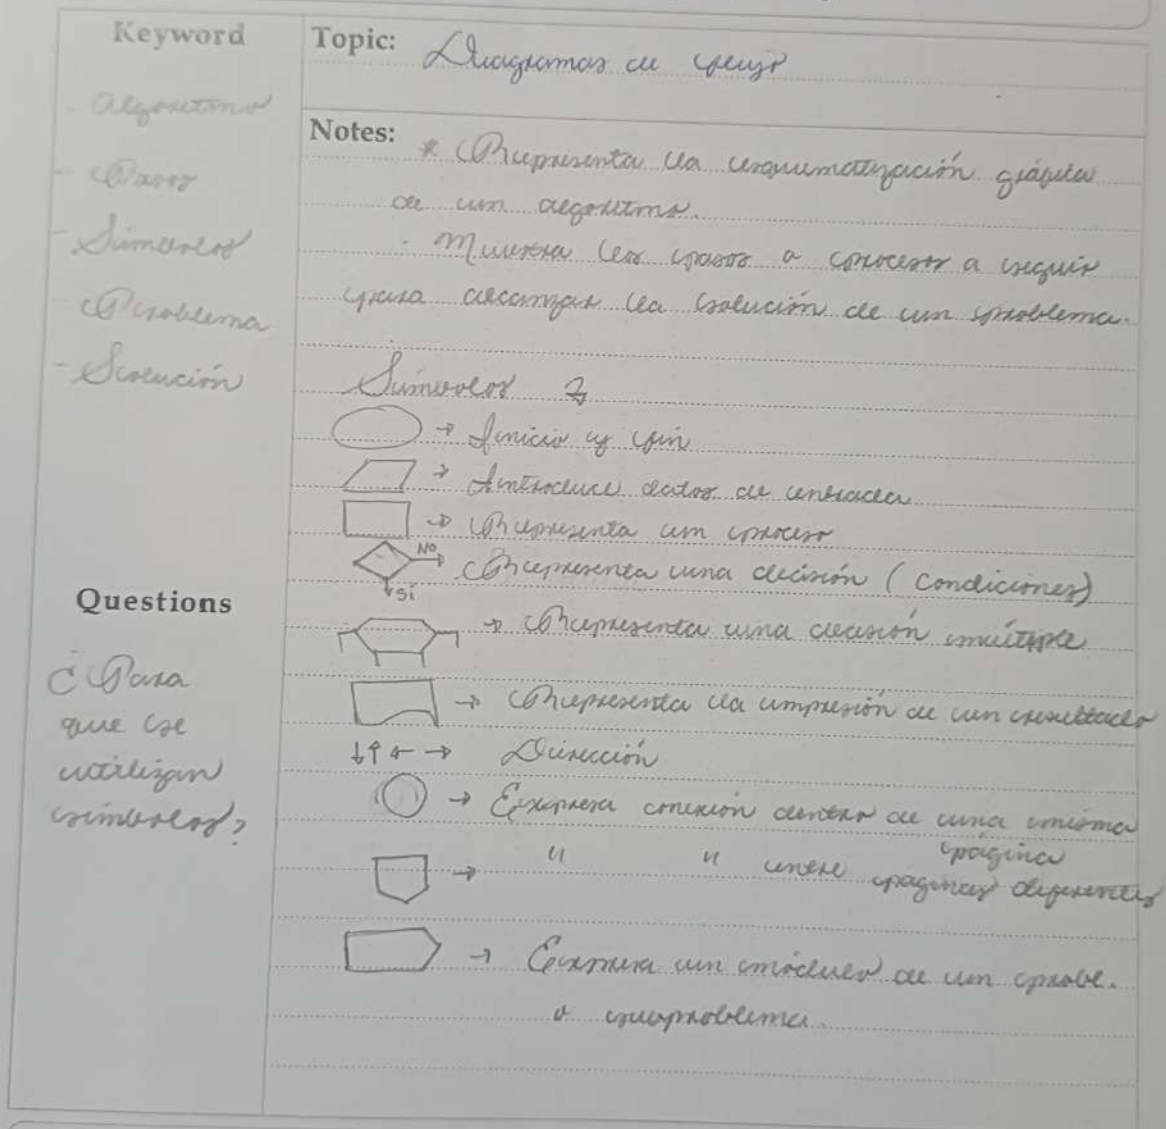 Keyword
- Algoritmo
- Pasos
- Símbolos
- Problema
- Solución
Questions
¿Para
que se
utilizan
símbolos?
Topic: Diagramas de flujo
Notes: * Representa la esquematización gráfica
de un algoritmo.
- Muestra los pasos o procesos a seguir
para alcanzar la solución de un problema.
Símbolos
→ Inicio y fin
→ Introduce datos de entrada
→ Representa un proceso
NO → Representa una decisión (condiciones)
Sí
→ Representa una decisión múltiple
→ Representa la impresión de un resultado
↓↑←→ Dirección
→ Expresa conexión dentro de una misma
página
→ " " entre páginas diferentes
→ Expresa un módulo de un proble.
o subproblema.